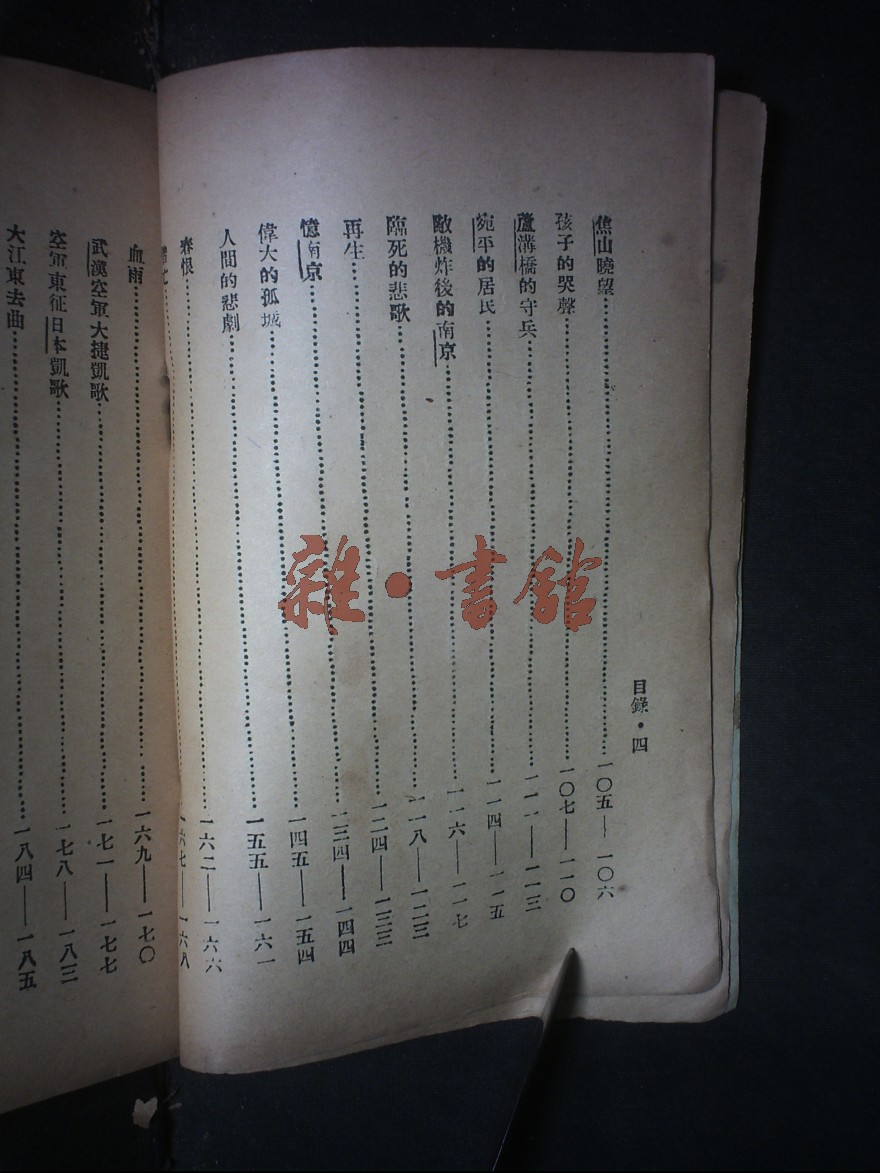 目錄・四
焦山曉望……一〇五——一〇六
孩子的哭聲……一〇七——一一〇
蘆溝橋的守兵……一一一——一一三
宛平的居民……一一四——一一五
敵機炸後的南京……一一六——一一七
臨死的悲歌……一一八——一二三
再生……一二四——一三三
憶南京……一三四——一四四
偉大的孤城……一四五——一五四
人間的悲劇……一五五——一六一
春恨……一六二——一六六
……一六七——一六八
血雨……一六九——一七〇
武漢空軍大捷凱歌……一七一——一七七
空軍東征日本凱歌……一七八——一八三
大江東去曲……一八四——一八五
雜・書館